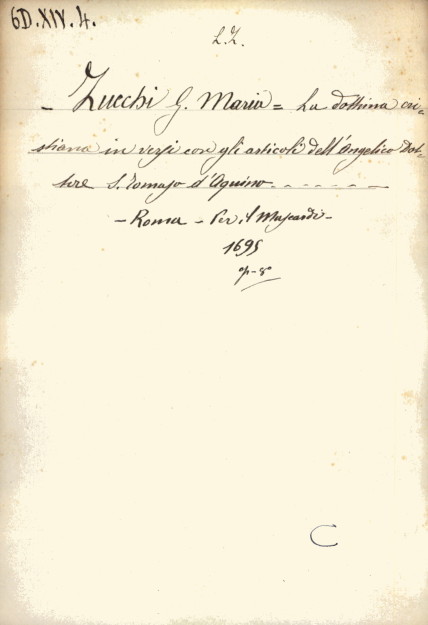 6D.XIV.4.
L.Z.
- Zucchi G. Maria = La dottrina cri-
stiana in versi con gli articoli dell'Angelico Dot-
tore S. Tomaso d'Aquino
- Roma - Per il Mascardi -
1695
op-8°
C